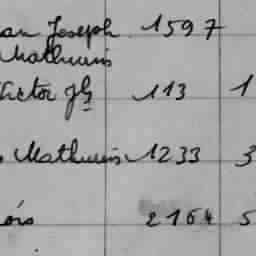 an Joseph 1597
Mathurin
ictor Jh 113 1
Mathurin 1233 3
ois 2164 5